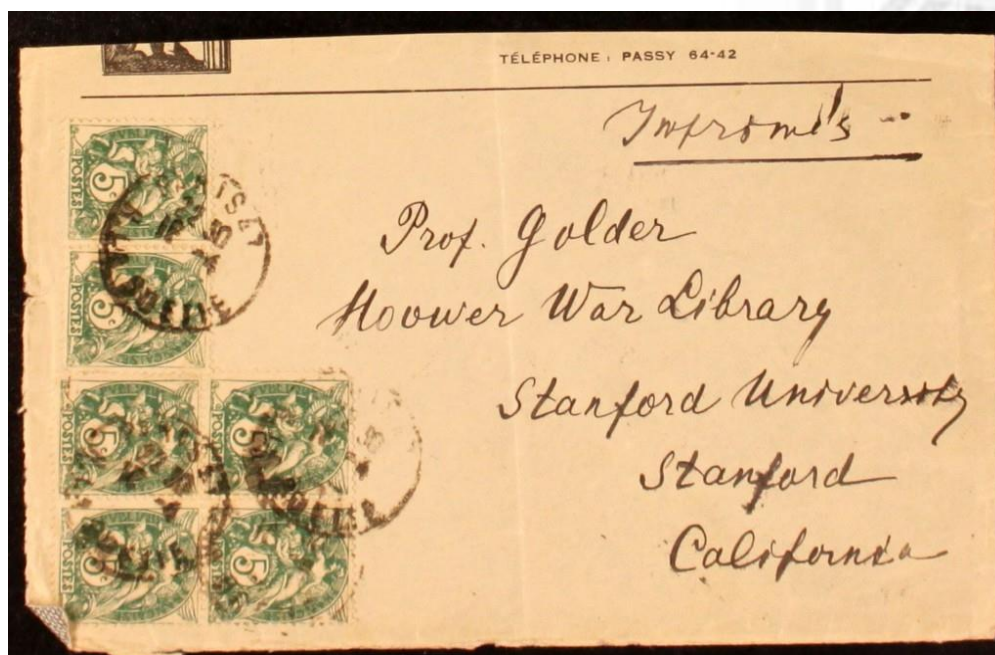 TÉLÉPHONE : PASSY 64-42
Imprimés
Prof. Golder
Hoower War Library
Stanford University
Stanford
California
POSTES
5c
POSTES
5c
POSTES
5c
POSTES
5c
POSTES
5c
5c